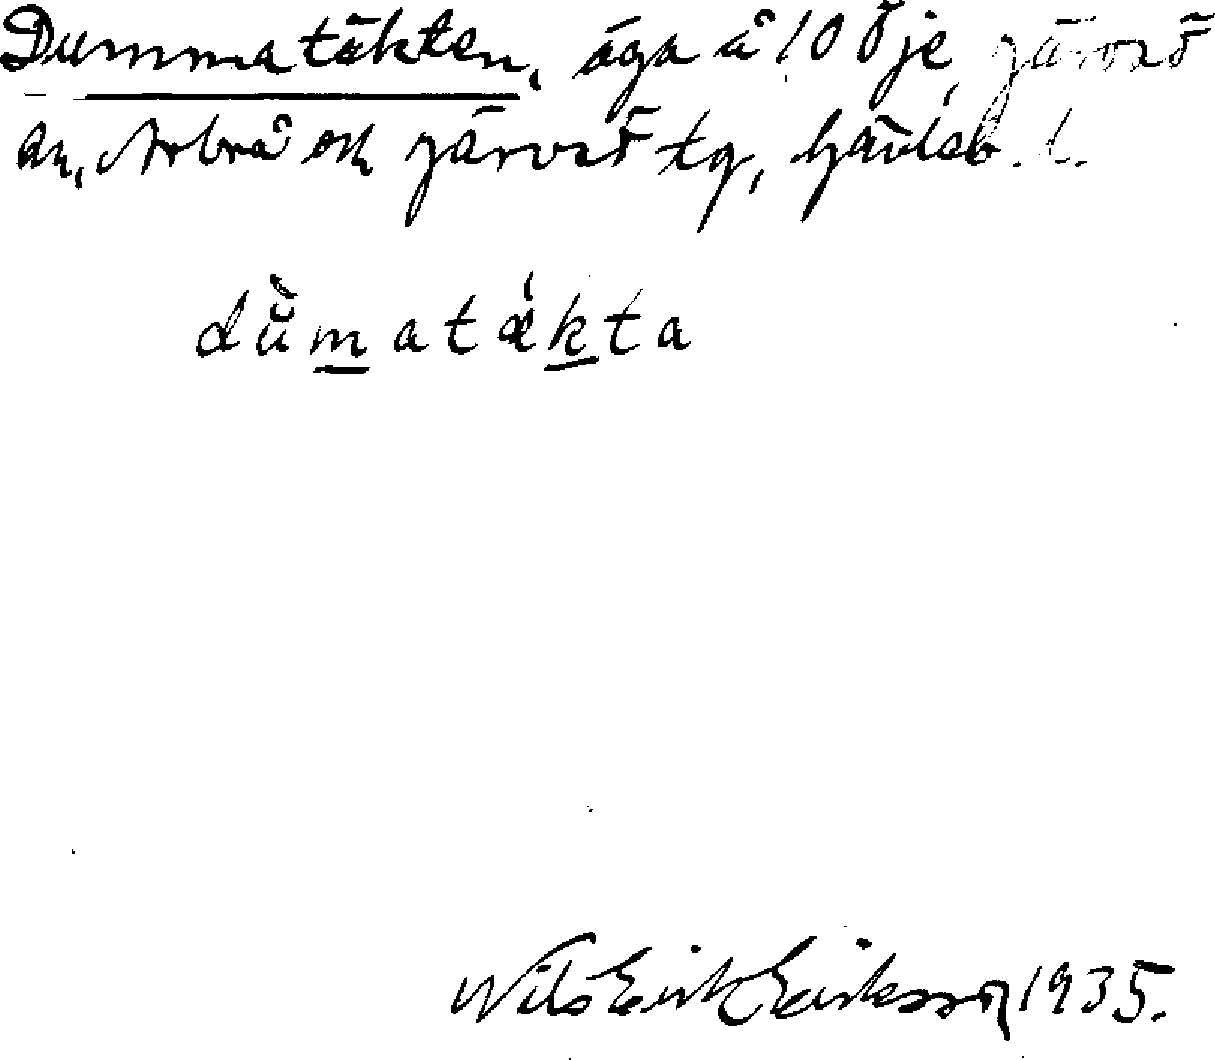 Dummatäkten, äga å 10 Öje, Järvsö
sn, Arbrå och Järvsö tg, Gävleb. l.
dùmatǽkta
Nils Erik Eriksson 1935.